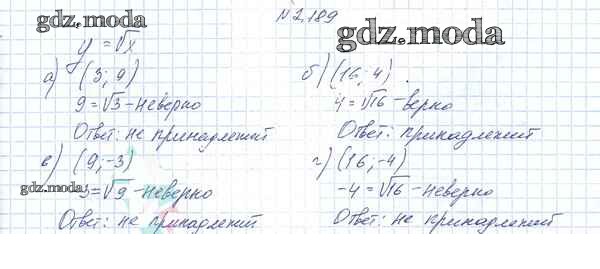 №2.189
gdz.moda
gdz.moda
y = √x
а) (3; 9)
9 = √3 - неверно
Ответ: не принадлежит
б) (16; 4).
4 = √16 - верно
Ответ: принадлежит
в) (9; -3)
gdz.moda
-3 = √9 - неверно
Ответ: не принадлежит
г) (16; -4)
-4 = √16 - неверно
Ответ: не принадлежит